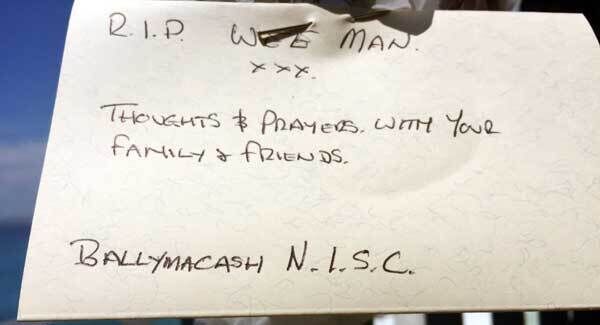 R.I.P. WEE MAN.
xxx.
THOUGHTS & PRAYERS. WITH YOUR
FAMILY & FRIENDS.
BALLYMACASH N.I.S.C.